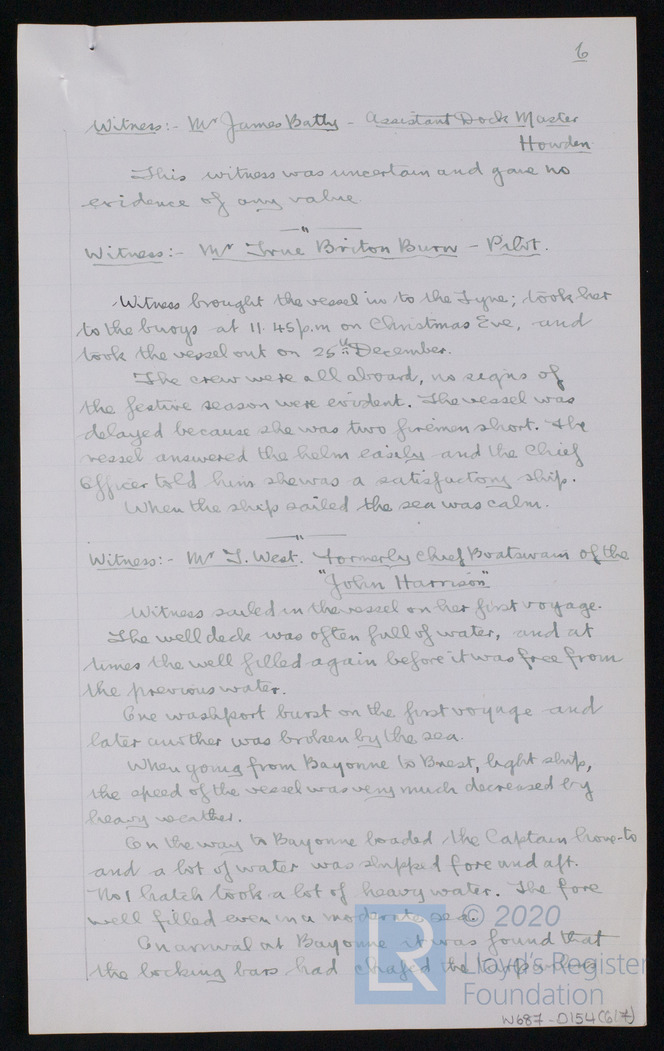 6
Witness:- Mr James Batty - Assistant Dock Master
Howden
This witness was uncertain and gave no
evidence of any value.
Witness:- Mr True Briton Burn - Pilot.
Witness brought the vessel in to the Tyne; took her
to the buoys at 11.45 p.m on Christmas Eve, and
took the vessel out on 25th December.
The crew were all aboard, no signs of
the festive season were evident. The vessel was
delayed because she was two firemen short. The
vessel answered the helm easily and the Chief
Officer told him she was a satisfactory ship.
When the ship sailed the sea was calm.
Witness:- Mr T. West. formerly Chief Boatswain of the
"John Harrison"
Witness sailed in the vessel on her first voyage.
The well deck was often full of water, and at
times the well filled again before it was free from
the previous water.
One washport burst on the first voyage and
later another was broken by the sea.
When going from Bayonne to Brest, light ship,
the speed of the vessel was very much decreased by
heavy weather.
On the way to Bayonne loaded the Captain hove-to
and a lot of water was shipped fore and aft.
No 1 hatch took a lot of heavy water. The fore
well filled even in a moderate sea.
On arrival at Bayonne it was found that
the locking bars had chafed the tarpaulins
© 2020
LR
Lloyd's Register
Foundation
W687-0154(6/7)